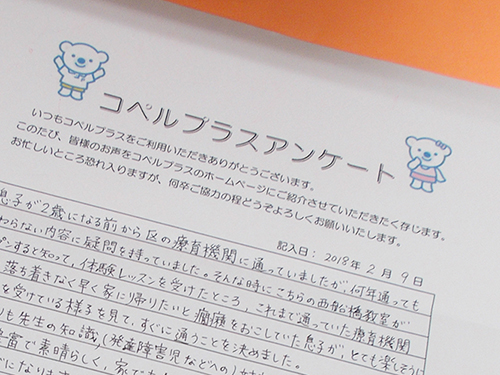 コペルプラスアンケート
いつもコペルプラスをご利用いただきありがとうございます。
このたび、皆様のお声をコペルプラスのホームページにご紹介させていただきたく存じます。
お忙しいところ恐れ入りますが、何卒ご協力の程どうぞよろしくお願いいたします。
記入日: 2018年 2月 9日
息子が2歳になる前から区の療育機関に通っていましたが、何年通っても
わらない内容に疑問を持っていました。そんな時にこちらの西船橋教室が
プンすると知って、体験レッスンを受けたところ、これまで通っていた療育機関
落ち着きなく早く家に帰りたいと癇癪をおこしていた息子が、とても楽しそうに
を受けている様子を見て、すぐに通うことを決めました。
りも先生の知識(発達障害児などへの)
豊富で素晴らしく、家で
になります